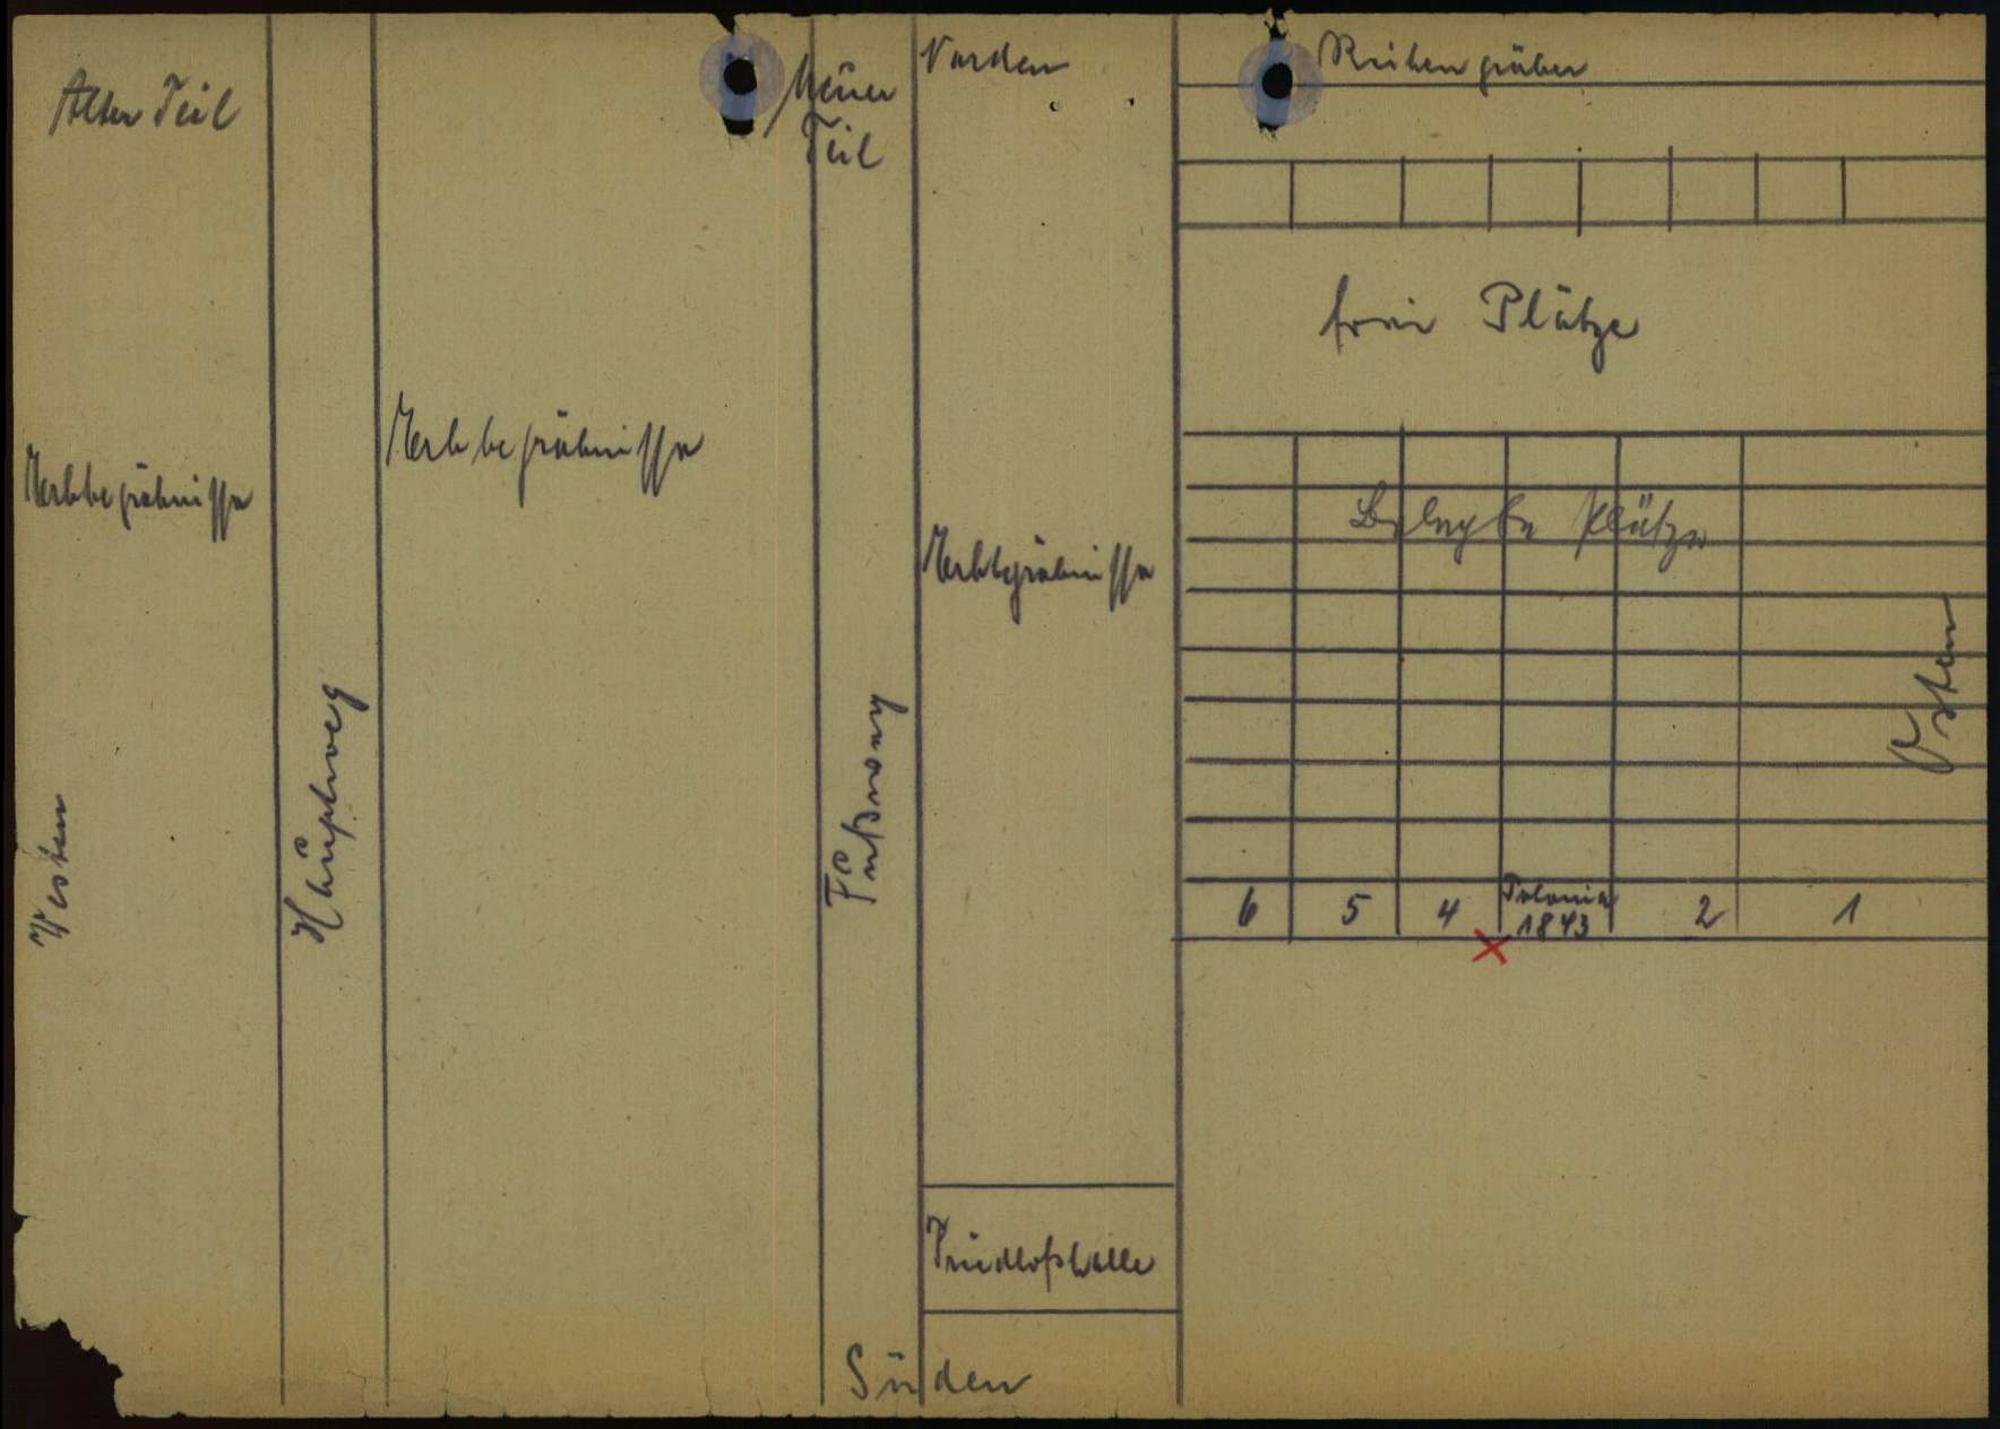 Alter Teil
Neuer
Teil
Norden
Reihengräber
freie Plätze
Erbbegräbnisse
Erbbegräbnisse
Erbbegräbnisse
Belegte Plätze
Westen
Hauptweg
Fußweg
Osten
6 5 4 Polonia 2 1
1843
Friedhofshalle
Süden